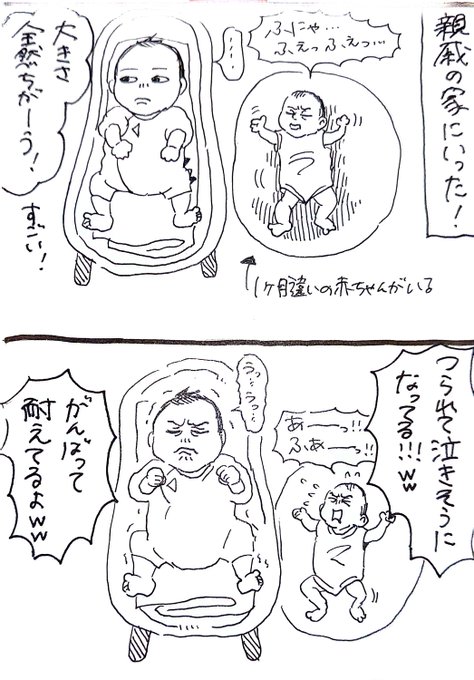 親戚の家にいった！
ふにゃ…
ふえっふえっ…
…
大きさ
全然ちがーう！
すごい！
1ヶ月違いの赤ちゃんがいる
つられて泣きそうに
なってる!!!ww
あーっ!!
ふぁーっ!!
うっ…うっ…
がんばって
耐えてるよww